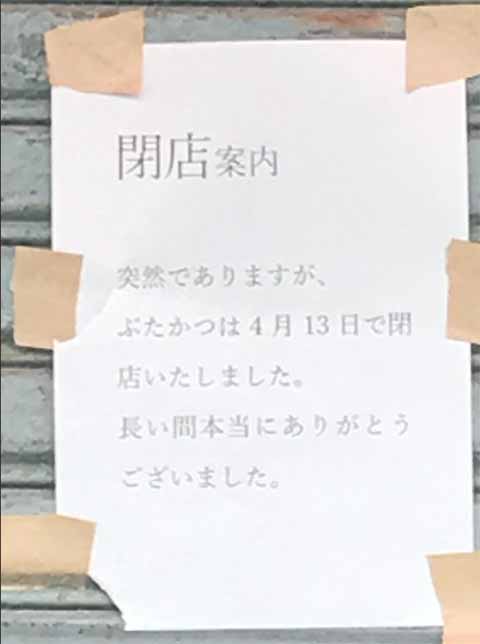 閉店案内
突然でありますが、
ぶたかつは4月13日で閉
店いたしました。
長い間本当にありがとう
ございました。